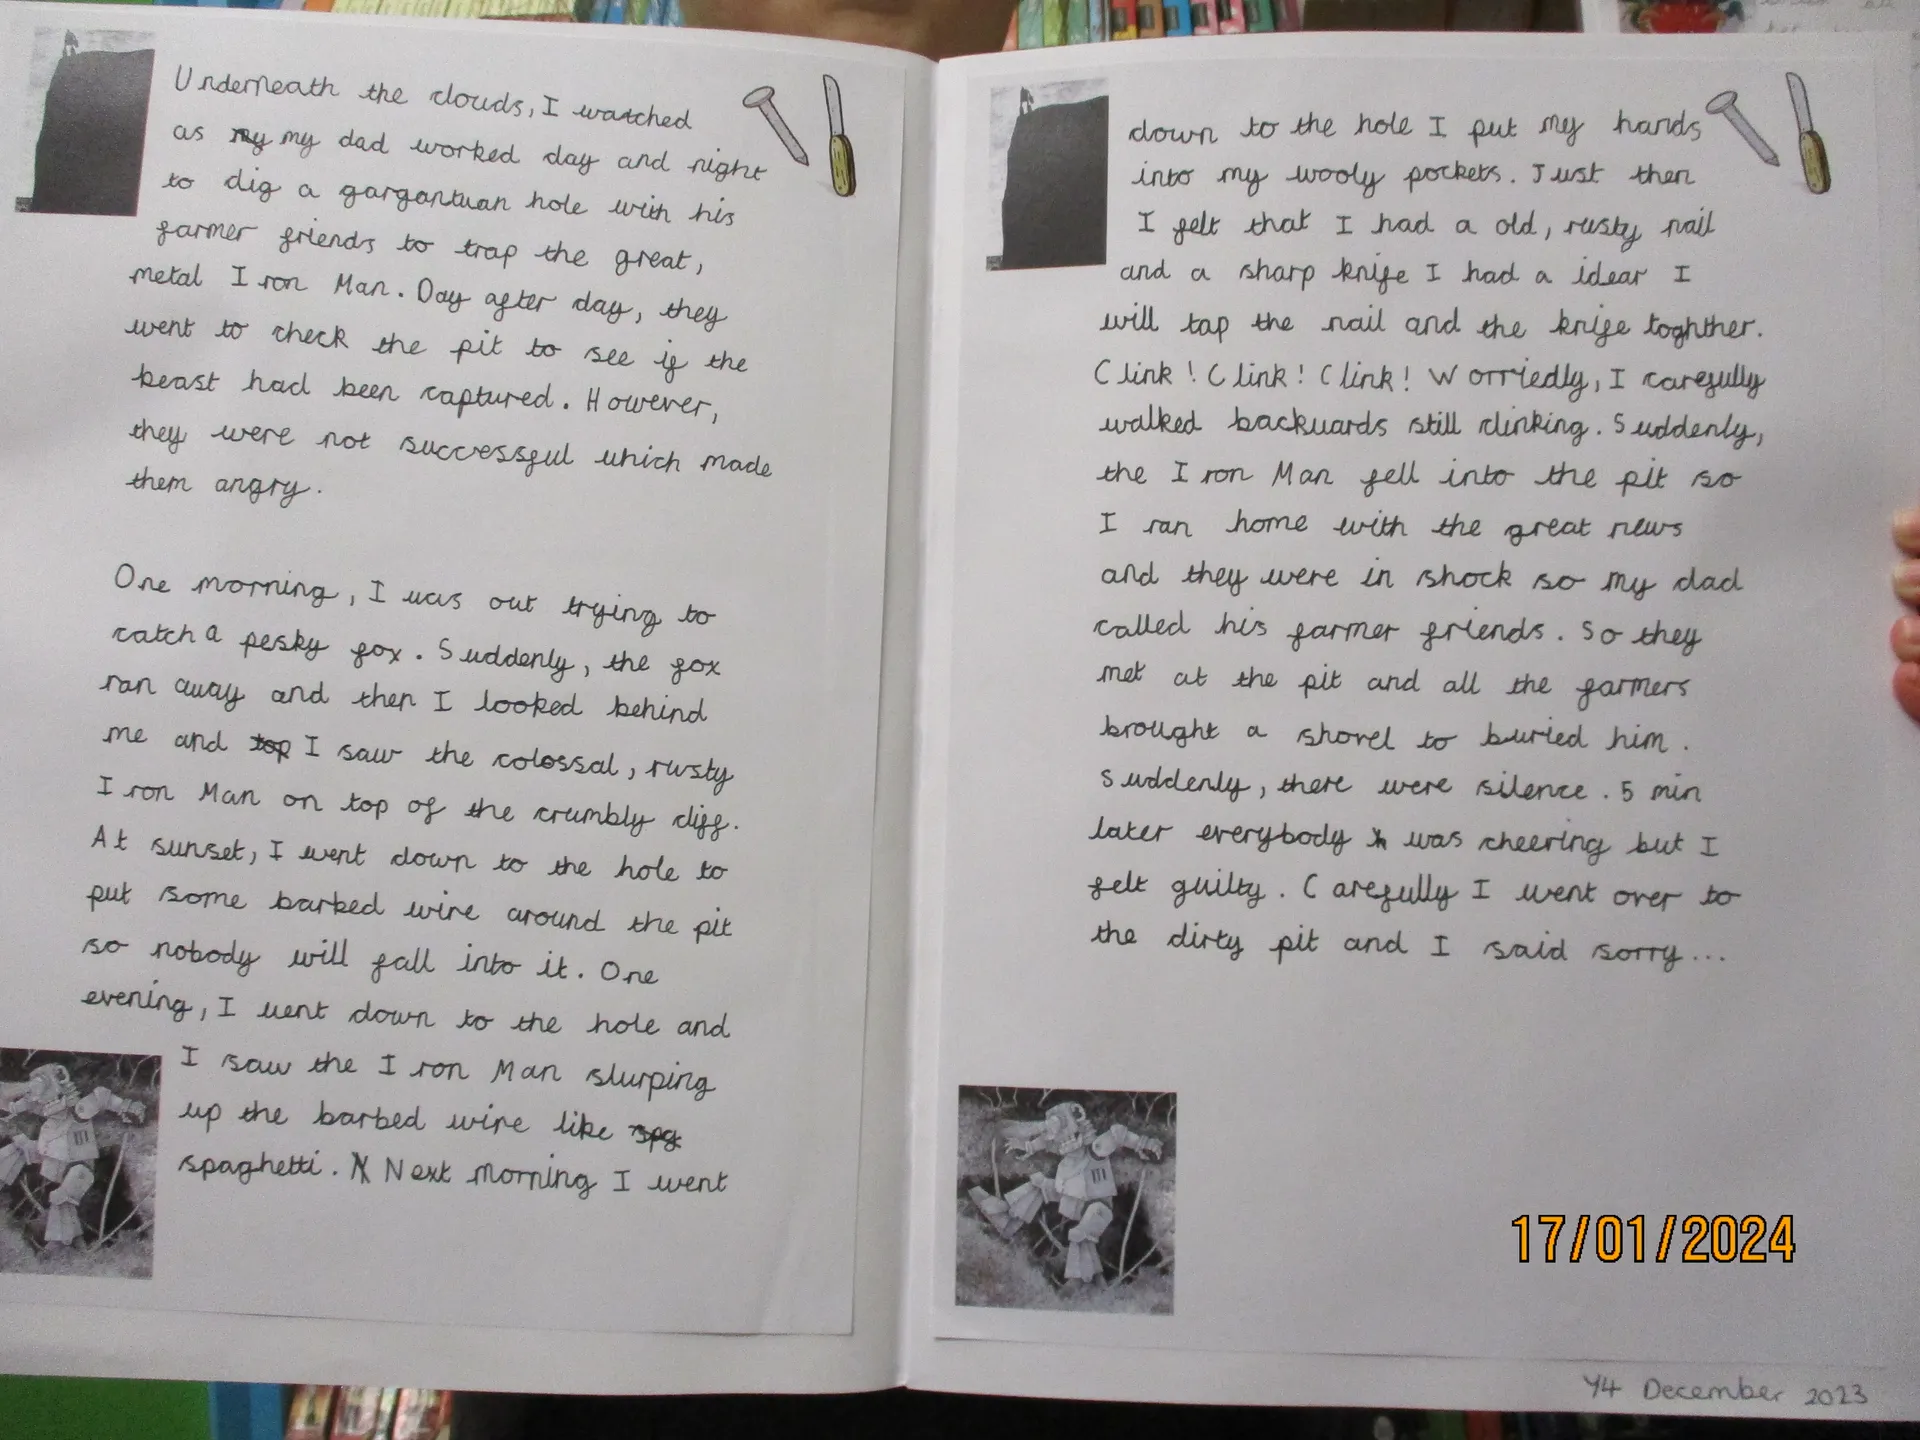 Underneath the clouds, I watched
as my my dad worked day and night
to dig a gargantuan hole with his
farmer friends to trap the great,
metal Iron Man. Day after day, they
went to check the pit to see if the
beast had been captured. However,
they were not successful which made
them angry.
One morning, I was out trying to
catch a pesky fox. Suddenly, the fox
ran away and then I looked behind
me and top I saw the colossal, rusty
Iron Man on top of the crumbly cliff.
At sunset, I went down to the hole to
put some barbed wire around the pit
so nobody will fall into it. One
evening, I went down to the hole and
I saw the Iron Man slurping
up the barbed wire like spg
spaghetti. N Next morning I went
down to the hole I put my hands
into my wooly pockets. Just then
I felt that I had a old, rusty nail
and a sharp knife I had a idear I
will tap the nail and the knife toghther.
Clink! Clink! Clink! Worriedly, I carefully
walked backwards still clinking. Suddenly,
the Iron Man fell into the pit so
I ran home with the great news
and they were in shock so my dad
called his farmer friends. So they
met at the pit and all the farmers
brought a shovel to buried him.
Suddenly, there were silence. 5 min
later everybody h was cheering but I
felt guilty. Carefully I went over to
the dirty pit and I said sorry...
17/01/2024
Y4 December 2023